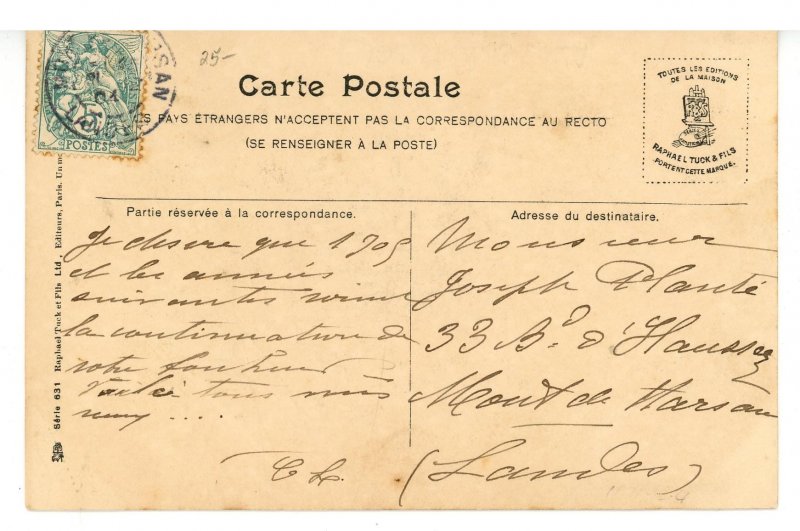 25-
Carte Postale
PAYS ÉTRANGERS N'ACCEPTENT PAS LA CORRESPONDANCE AU RECTO
(SE RENSEIGNER À LA POSTE)
TOUTES LES EDITIONS
DE LA MAISON
RAPHAEL TUCK & FILS
PORTENT CETTE MARQUE.
POSTES
Série 631 Raphael Tuck et Fils Ltd, Editeurs, Paris.
Partie réservée à la correspondance.
Je desire que 1905
et les années
suivantes
la continuation de
votre bonheur
Voilà tous mes
....
Adresse du destinataire.
Monsieur
Joseph Planté
33 Bd d'Haussez
Mont de Marsan
(Landes)